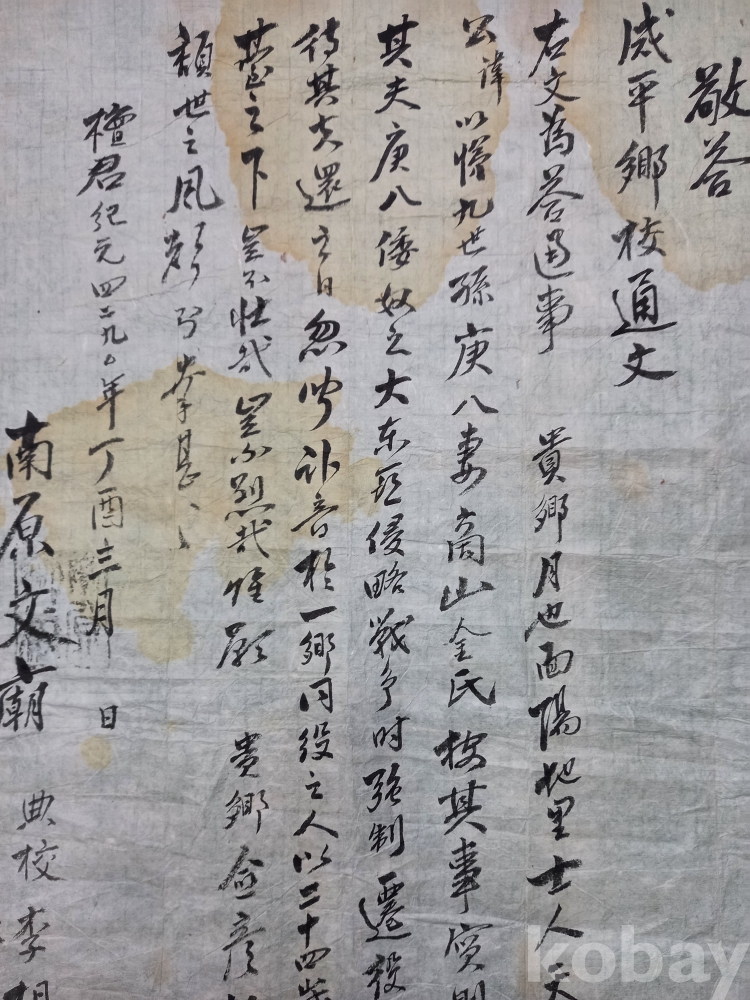 敬答
咸平鄕校通文
右文爲答通事 貴鄕月也面陽地里士人
公諱以 九世孫庚八妻商山金氏 其事實則
其夫庚八倭奴之大東亞侵略戰爭时强制遷役
待其夫還之日忽 訃音於一鄕同役之人以二十四歲
之下豈不壯哉豈不烈哉惟願 貴鄕僉彦
頹世之風
檀君紀元四二九〇年丁酉三月 日
南原文廟 典校李
kobay